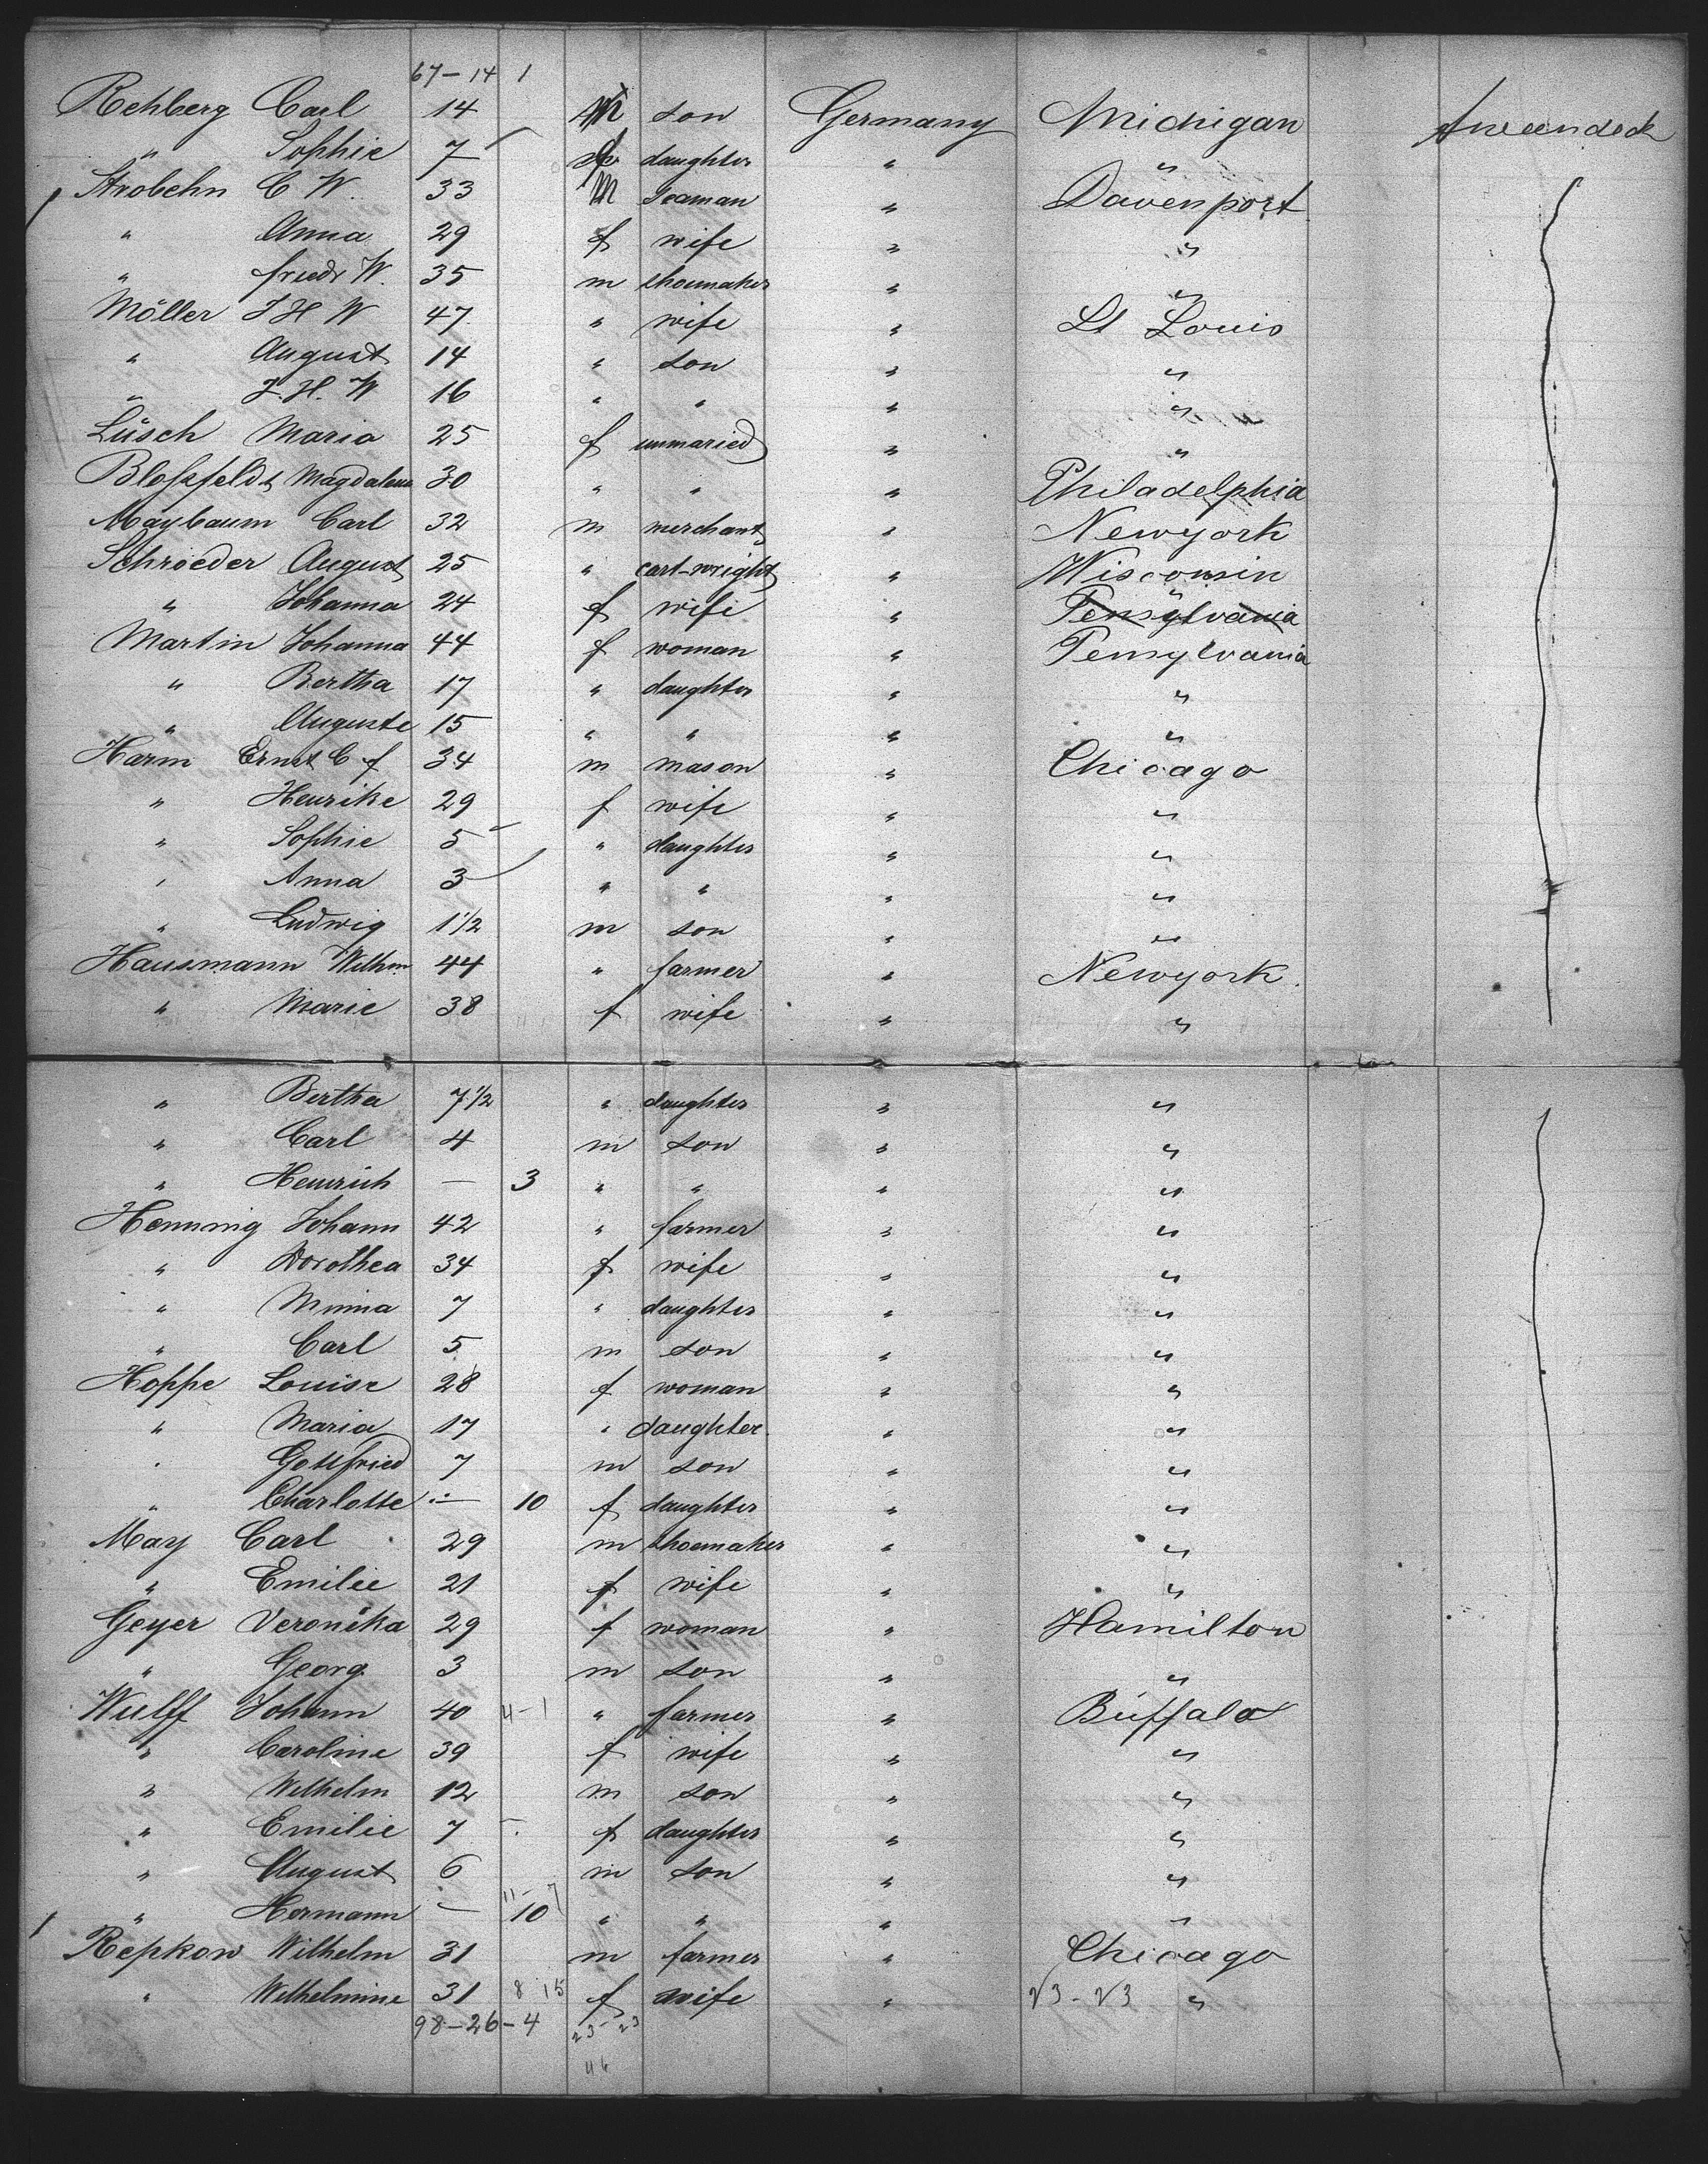 67-14 1
Rehberg Carl 14 m son Germany Michigan
" Sophie 7 f daughter " "
Strobehn C W. 33 m seaman " Davenport
" Anna 29 f wife " "
" friedr W. 35 m shoemaker " "
Möller J H W 47 " wife " St Louis
" August 14 " son " "
" J. H. W 16 " " " "
Lüsch Maria 25 f unmaried " "
Blossfeldt Magdalena 30 " " " Philadelphia
Maybaum Carl 32 m merchant " Newyork
Schröeder August 25 " cart-wright " Wisconsin
" Johanna 24 f wife " " Pensylvania
Martin Johanna 44 f woman " Pensylvania
" Bertha 17 " daughter " "
" Auguste 15 " " " "
Harm Ernst C f 34 m mason " Chicago
" Henrike 29 f wife " "
" Sophie 5 " daughter " "
" Anna 3 " " " "
" Ludwig 1 1/2 m son " "
Hausmann Wilhm 44 " farmer " Newyork.
" Marie 38 f wife " "
" Bertha 7 1/2 " daughter " "
" Carl 4 m son " "
" Heinrich — 3 " " " "
Henning Johann 42 " farmer " "
" Dorothea 34 f wife " "
" Minna 7 " daughter " "
" Carl 5 m son " "
Hoppe Louise 28 f woman " "
" Maria 17 " daughter " "
" Gottfried 7 m son " "
" Charlotte — 10 f daughter " "
May Carl 29 m shoemaker " "
" Emilie 21 f wife " "
Geyer Veronika 29 f woman " Hamilton
" Georg 3 m son " "
Wulff Johann 40 4-1 " farmer " Büffalo
" Caroline 39 f wife " "
" Wilhelm 12 m son " "
" Emilie 7 f daughter " "
" August 6 m son " "
" Hermann — 11-7 10 " " " "
Repkow Wilhelm 31 m farmer " Chicago
" Wilhelmine 31 8 15 f wife " 23-23 "
98-26-4 23-23
46